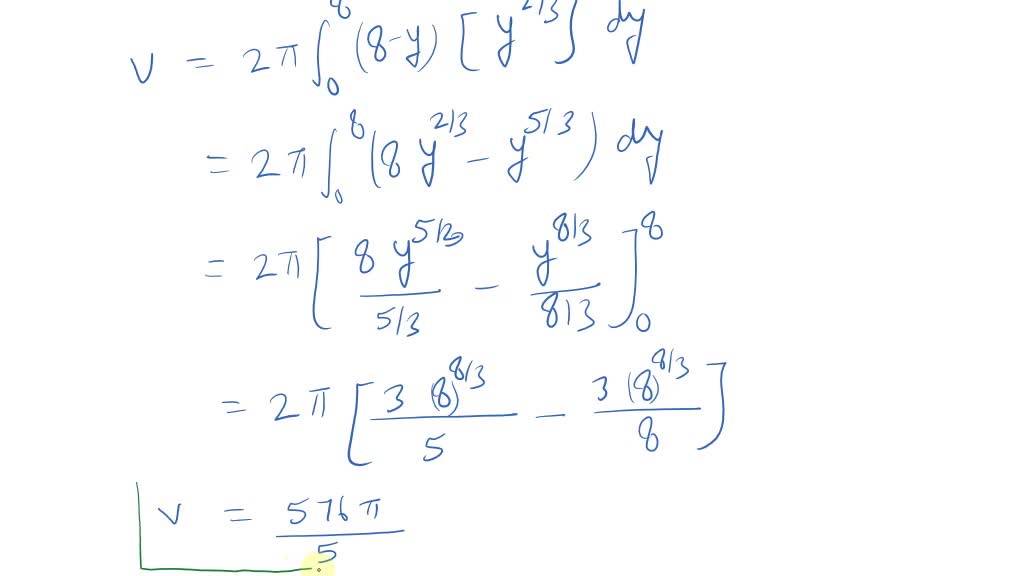 V = 2π ∫₀⁸ (8-y) [ y^2/3 ] dy
= 2π ∫₀⁸ (8 y^2/3 - y^5/3) dy
= 2π [ 8 y^5/3 / 5/3 - y^8/3 / 8/3 ]₀⁸
= 2π [ 3 (8)^8/3 / 5 - 3 (8)^8/3 / 8 ]
V = 576π / 5